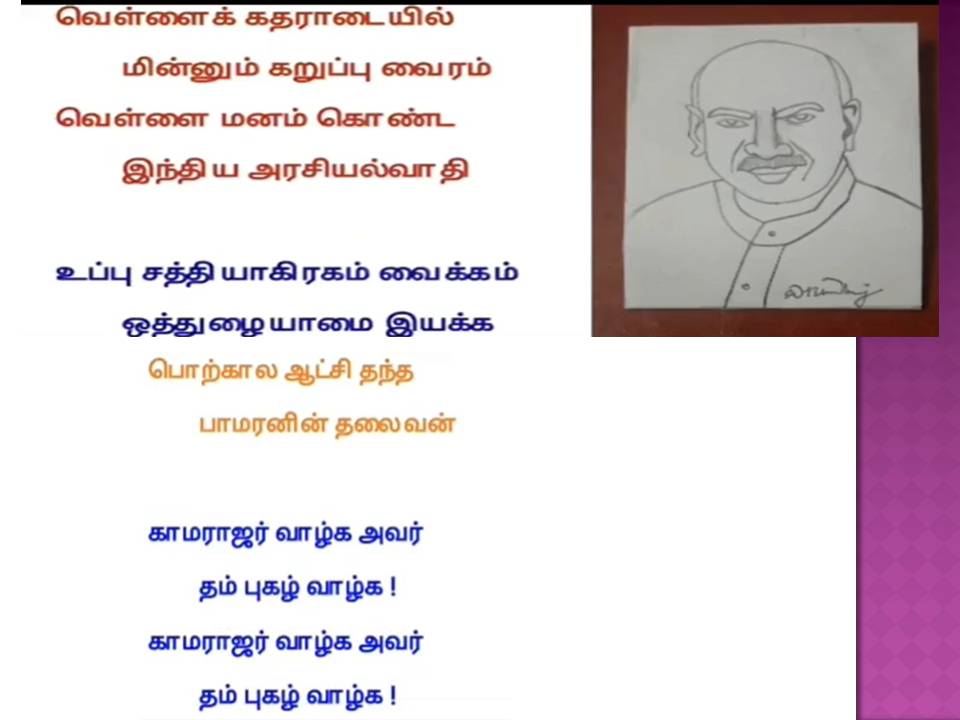 வெள்ளைக் கதராடையில்
மின்னும் கறுப்பு வைரம்
வெள்ளை மனம் கொண்ட
இந்திய அரசியல்வாதி
உப்பு சத்தியாகிரகம் வைக்கம்
ஒத்துழையாமை இயக்க
பொற்கால ஆட்சி தந்த
பாமரனின் தலைவன்
காமராஜர் வாழ்க அவர்
தம் புகழ் வாழ்க !
காமராஜர் வாழ்க அவர்
தம் புகழ் வாழ்க !